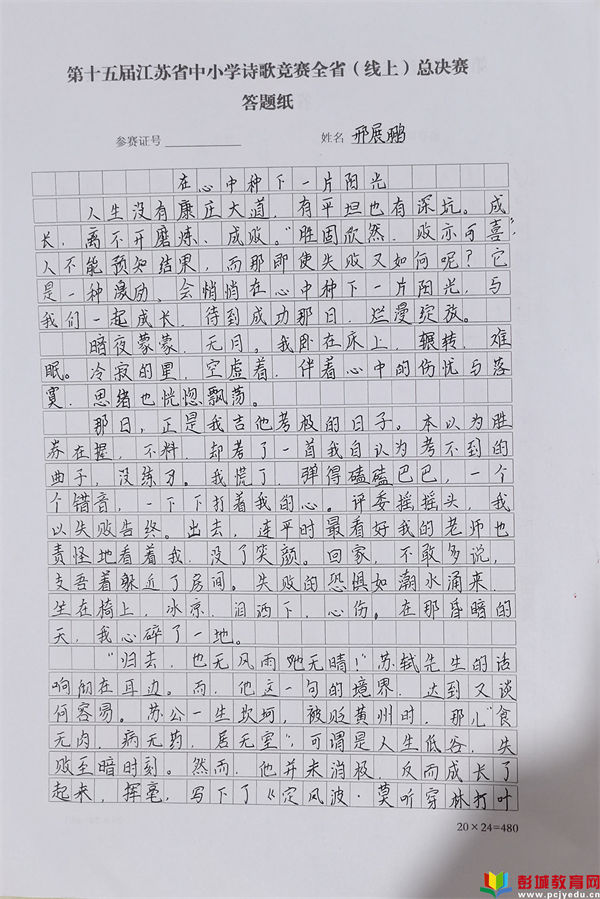 第十五届江苏省中小学诗歌竞赛全省（线上）总决赛
答题纸
参赛证号 姓名 邢展鹏
在心中种下一片阳光
人生没有康庄大道，有平坦也有深坑。成
长，离不开磨炼、成败。“胜固欣然，败亦可喜”
人不能预知结果，而那即使失败又如何呢？它
是一种激励，会悄悄在心中种下一片阳光，与
我们一起成长，待到成功那日，烂漫绽放。
暗夜蒙蒙，无月。我卧在床上，辗转，难
眠。冷寂的黑，空虚着，伴着心中的伤忧与落
寞，思绪也恍惚飘荡。
那日，正是我吉他考极的日子。本以为胜
券在握，不料，却考了一首我自认为考不到的
曲子，没练习。我慌了，弹得磕磕巴巴，一个
个错音，一下下打着我的心。评委摇摇头，我
以失败告终。出去，连平时最看好我的老师也
责怪地看着我，没了笑颜。回家，不敢多说，
支吾着躲近了房间。失败的恐惧如潮水涌来，
坐在椅上，冰凉，泪洒下，心伤。在那昏暗的
天，我心碎了一地。
“归去，也无风雨也无晴！”苏轼先生的话
响彻在耳边。而，他这一句的境界，达到又谈
何容易。苏公一生坎坷，被贬黄州时，那儿“食
无肉，病无药，居无室”，可谓是人生低谷，失
败至暗时刻。然而，他并未消极，反而成长了
起来，挥毫，写下了《定风波·莫听穿林打叶
20×24=480
彭城教育网
www.pcjyedu.cn